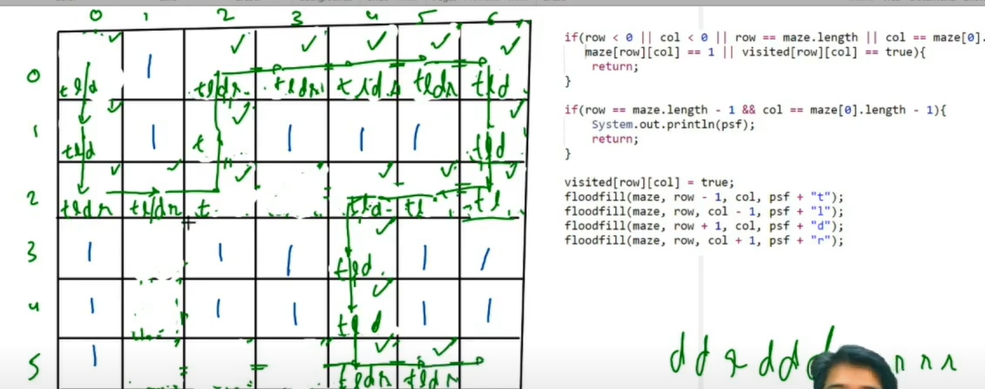 0 1 2 3 4 5 6
0 tld 1 tldr tldr tldr tldr tld
1 tld 1 t 1 1 1 tld
2 tldr tldr t tld tl tl
3 1 1 1 tld 1 1
4 1 1 1 tld 1 1
5 1 tldr tldr
if(row < 0 || col < 0 || row == maze.length || col == maze[0].
maze[row][col] == 1 || visited[row][col] == true){
return;
}
if(row == maze.length - 1 && col == maze[0].length - 1){
System.out.println(psf);
return;
}
visited[row][col] = true;
floodfill(maze, row - 1, col, psf + "t");
floodfill(maze, row, col - 1, psf + "l");
floodfill(maze, row + 1, col, psf + "d");
floodfill(maze, row, col + 1, psf + "r");
d d r d d d r r r